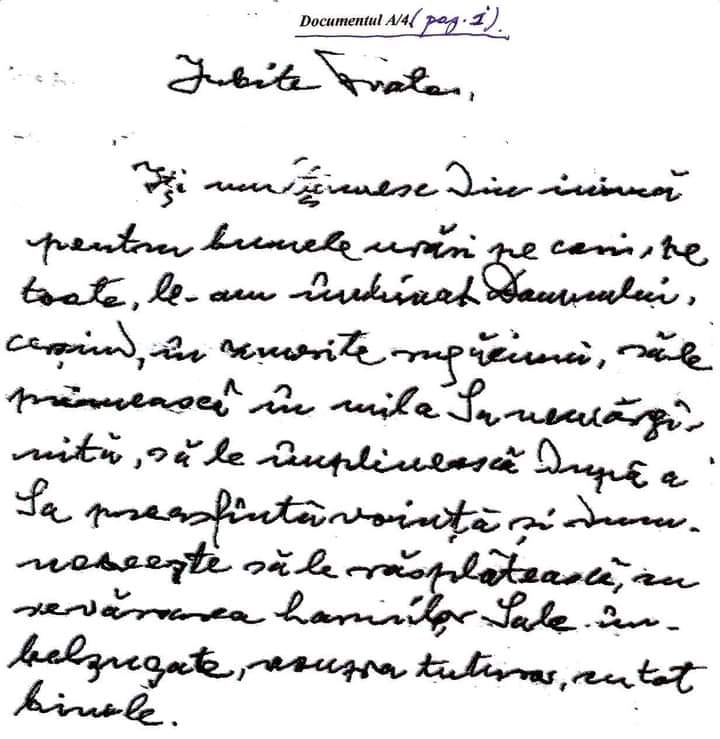 Documentul A/4 (pag. 1).
Iubite Frate,
Îți mulțumesc din inimă
pentru bunele urări pe care, pe
toate, le-am închinat Domnului,
cerșind, în smerite rugăciuni, să le
primească în mila Sa nemărgi-
nită, să le împlinească după a
Sa preasfântă voință și dum-
nezeește să le răsplătească, cu
revărsarea harurilor Sale îm-
belșugate, asupra tuturor, cu tot
binele.